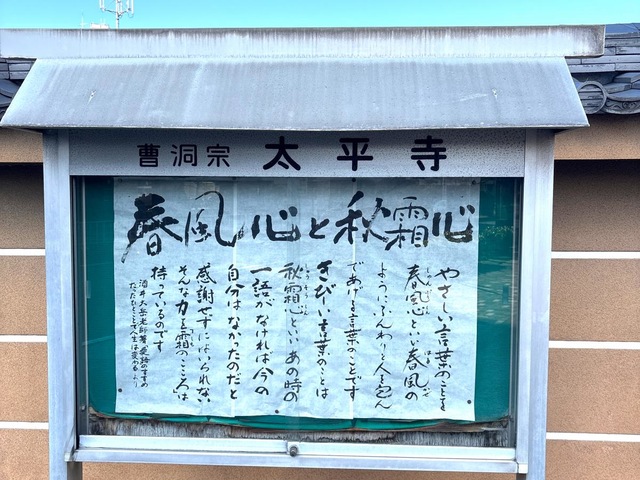 曹洞宗 太平寺
春風心と秋霜心
やさしい言葉のことを
春風心といい春風の
ようにふんわりと人を包ん
であげる言葉のことです
きびしい言葉のことは
秋霜心といいあの時の
一語がなければ今の
自分はなかったのだと
感謝せずにはいられない
そんな力を霜のこころは
持っているのです
酒井大岳老師著
たったひとことで人生は変わるより